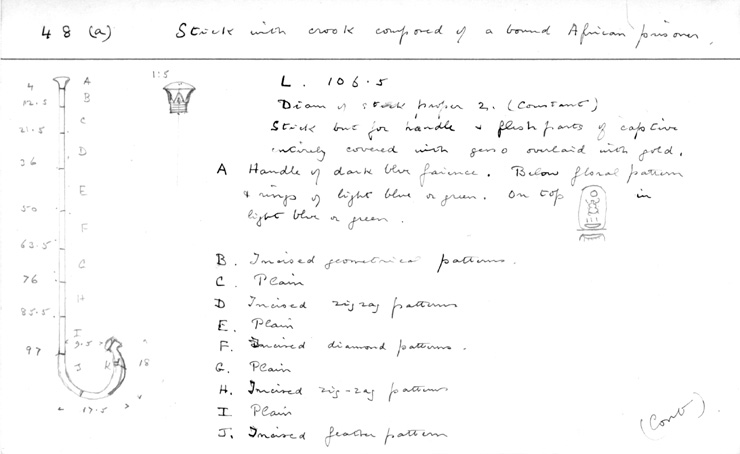 48 (a) Stick with crook composed of a bound African prisoner.
1:5
L. 106.5
Diam of stick proper 2. (Constant)
Stick but for handle & flesh parts of captive
entirely covered with gesso overlaid with gold.
A Handle of dark blue faience. Below floral pattern
& rings of light blue or green. On top in
light blue or green.
B. Incised geometrical patterns.
C. Plain
D Incised zigzag patterns
E. Plain
F. Incised diamond patterns.
G. Plain
H. Incised zig-zag patterns
I Plain
J. Incised feather pattern
(Cont)
4 A
12.5 B
21.5 C
36 D
E
50 F
63.5 G
76 H
85.5 I
9.5
97 J K 18
17.5